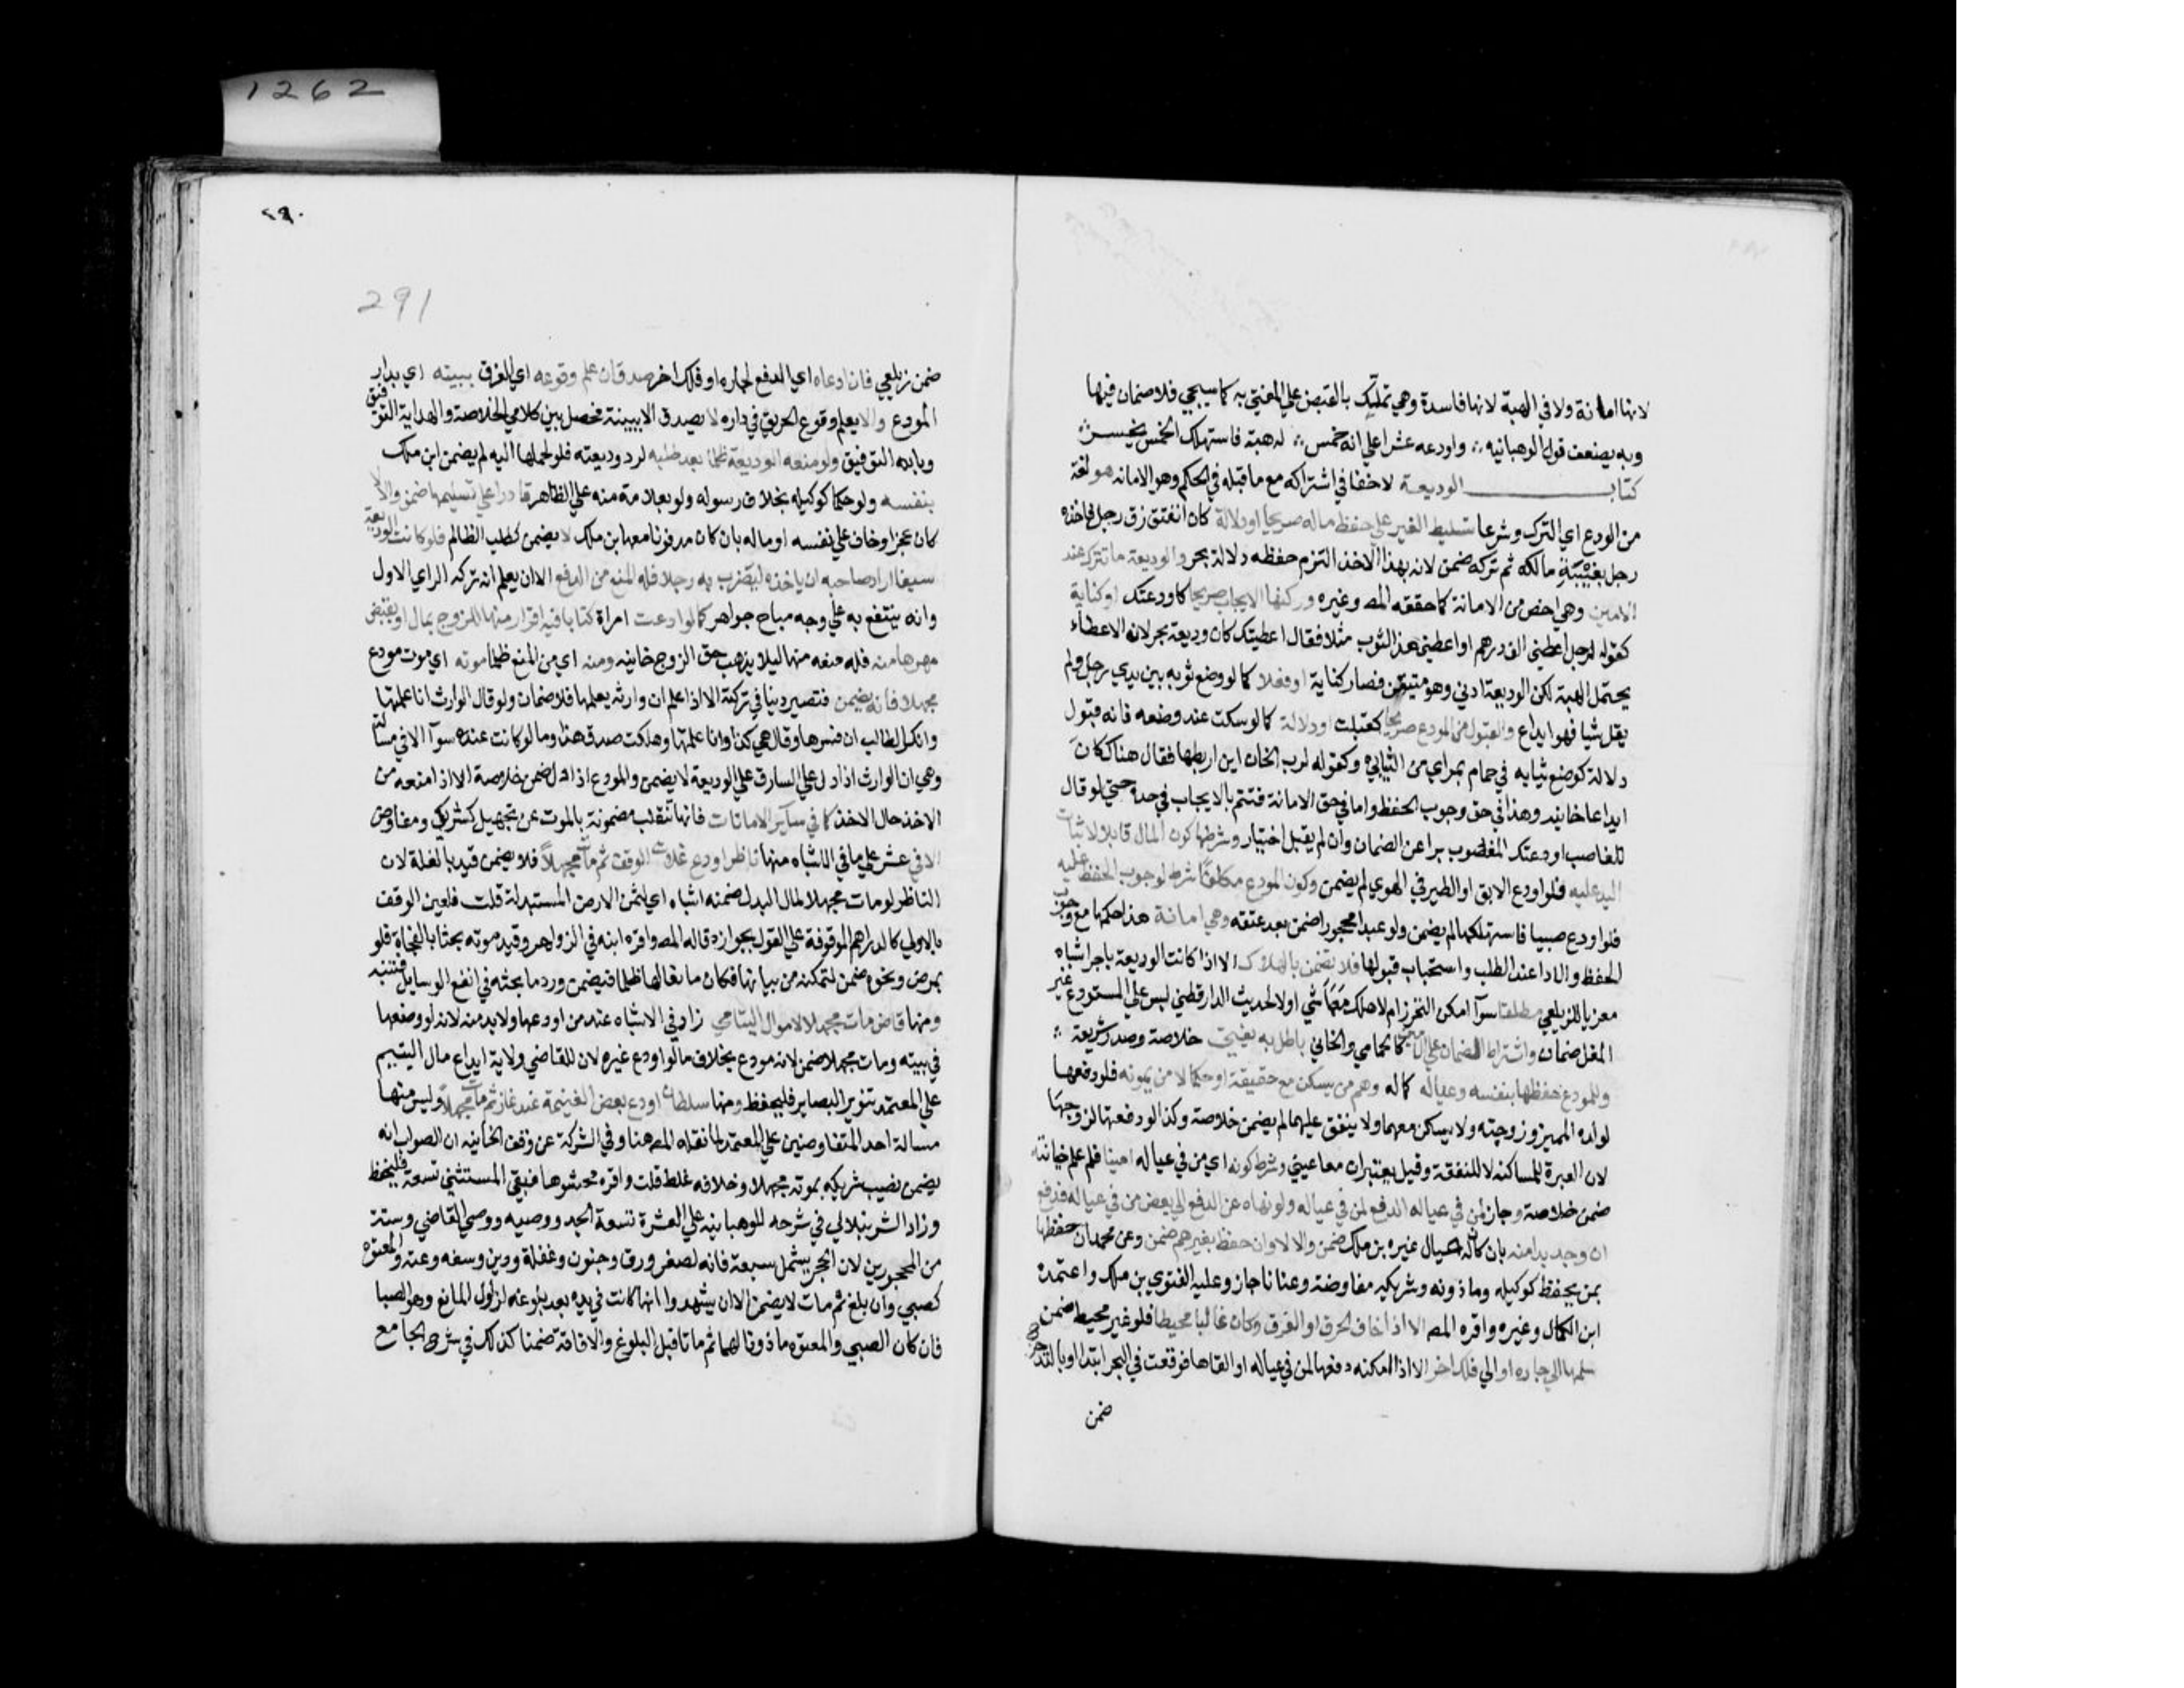 1262
لانها امانة ولا في الهبة لانها فاسدة وهي تمليك بالقبض علي المفتي به كما سيجي فلا ضمان فيها
وبه يضعف قول الوهبانيه واودعه عشرا علي انه خمس له هبة فاستهلك الخمس يخسر
كتاب الوديعة لا خفا في اشتراكه مع ما قبله في الحكم وهو الامانه هو لغة
من الودع اي الترك وشرعا تسليط الغير علي حفظ ماله صريحا او دلالة كان انفتق زق رجل فاخذه
رجل بغيبة مالكه ثم تركه ضمن لانه بهذا الاخذ التزم حفظه دلالة بحر والوديعة ما تترك عند
الامين وهي اخص من الامانة كما حققه المص وغيره وركنها الايجاب صريحا كاودعتك او كناية
كقوله لرجل اعطني الف درهم او اعطني هذا الثوب مثلا فقال اعطيتك كان وديعة بحر لان الاعطاء
يحتمل الهبة لكن الوديعة ادني وهو متيقن فصار كناية او فعلا كما لو وضع ثوبه بين يدي رجل ولم
يقل شيا فهو ايداع والقبول من المودع صريحا كقبلت او دلالة كما لو سكت عند وضعه فانه قبول
دلالة كوضع ثيابه في حمام بمراي من الثيابي وكقوله لرب الخان اين اربطها فقال هناك كان
ايداعا خانيه وهذا في حق وجوب الحفظ واما في حق الامانة فتتم بالايجاب وحده حتي لو قال
للغاصب اودعتك المغصوب برا عن الضمان وان لم يقبل اختيار وشرطها كون المال قابلا لاثبات
اليد عليه فلو اودع الابق او الطير في الهوي لم يضمن وكون المودع مكلفا شرط لوجوب الحفظ عليه
فلو اودع صبيا فاستهلكها لم يضمن ولو عبدا محجورا ضمن بعد عتقه وهي امانة هذا حكمها مع وجوب
الحفظ والادا عند الطلب واستحباب قبولها فلا تضمن بالهلاك الا اذا كانت الوديعة باجر اشباه
معزيا للزيلعي مطلقا سوآ امكن التحرز ام لا هلك معها شي او لا لحديث الدارقطني ليس علي المستودع غير
المغل ضمان واشتراط الضمان علي الامين كالحمامي والخاني باطل به يفتي خلاصة وصدر شريعة
وللمودع حفظها بنفسه وعياله كماله وهم من يسكن معه حقيقة او حكما لا من يمونه فلو دفعها
لولده المميز وزوجته ولا يسكن معهما ولا ينفق عليهما لم يضمن خلاصة وكذا لو دفعتها لزوجها
لان العبرة للمساكنه لا للنفقة وقيل يعتبران معا عيني وشرط كونه اي من في عياله امينا فلو علم خيانته
ضمن خلاصة وجاز لمن في عياله الدفع لمن في عياله ولو نهاه عن الدفع الي بعض من في عياله فدفع
ان وجد بدا منه بان كان له عيال غيره بن ملك ضمن والا لا وان حفظ بغيرهم ضمن وعن محمد ان حفظها
بمن يحفظ كوكيله وماذونه وشريكه مفاوضة وعنانا جاز وعليه الفتوي بن ملك واعتمده
ابن الكمال وغيره واقره المص الا اذا خاف الحرق او الغرق وكان غالبا محيطا فلو غير محيط ضمن
سلمها الي جاره او الي فلك اخر الا اذا امكنه دفعها لمن في عياله او القاها فوقعت في البحر ابتدا او بالتدحرج
ضمن
٢٩٠
291
ضمن زيلعي فان ادعاه اي الدفع لجاره او فلك اخر صدق ان علم وقوعه اي الغرق ببيته اي بدار
المودع والا يعلم وقوع الحريق في داره لا يصدق الا ببينة فحصل بين كلامي الخلاصة والهداية التوفيق
وبالله التوفيق ولو منعه الوديعة ظلما بعد طلبه لرد وديعته فلو لحملها اليه لم يضمن ابن ملك
بنفسه ولو حكما كوكيله بخلاف رسوله ولو بعلامة منه علي الظاهر قادرا علي تسليمها ضمن والا لا
كان عجزا وخاف علي نفسه او ماله بان كان مدفونا معها بن ملك لا يضمن كطلب الظالم فلو كانت الوديعة
سيفا اراد صاحبه ان ياخذه ليضرب به رجلا فله المنع من الدفع الا ان يعلم انه ترك الراي الاول
وانه ينتفع به علي وجه مباح جواهر كما لو اودعت امراة كتابا فيه اقرار منها للزوج بمال او بقبض
مهرها منه فله منعه منها ليلا يذهب حق الزوج خانيه ومنه اي من المنع ظلما موته اي موت مودع
مجهلا فانه يضمن فتصير دينا في تركته الا اذا علم ان وارثه يعلمها فلا ضمان ولو قال الوارث انا علمتها
وانكر الطالب ان فسرها وقال هي كذا وانا علمتها وهلكت صدق هذا وما لو كانت عنده سوآ الا في مسألة
وهي ان الوارث اذا دل علي السارق علي الوديعة لا يضمن والمودع اذا دل ضمن خلاصة الا اذا منعه من
الاخذ حال الاخذ كما في سآير الامانات فانها تنقلب مضمونة بالموت عن تجهيل كشريك ومفاوض
الا في عشر علي ما في الاشباه منها ناظر اودع غلات الوقف ثم مات مجهلا فلا يضمن قيد بالغلة لان
الناظر لو مات مجهلا لمال البدل ضمنه اشباه اي لثمن الارض المستبدلة قلت فلعين الوقف
بالاولي كالدراهم الموقوفة علي القول بجوازه قاله المص واقره ابنه في الزواهر وقيد موته بحثا بالفجاة فلو
بمرض ونحوه ضمن لتمكنه من بيانها فكان مانعا لها ظلما فيضمن ورد ما بحثه في انفع الوسايل فتنبه
ومنها قاض مات مجهلا لاموال اليتامي زاد في الاشباه عند من اودعها ولا بد منه لانه لو وضعها
في بيته ومات مجهلا ضمن لانه مودع بخلاف ما لو اودع غيره لان للقاضي ولاية ايداع مال اليتيم
علي المعتمد تنوير البصاير فليحفظ ومنها سلطان اودع بعض الغنيمة عند غاز ثم مات مجهلا وليس منها
مسالة احد المتفاوضين علي المعتمد لما نقله المص هنا وفي الشركة عن وقف الخانيه ان الصواب انه
يضمن نصيب شريكه بموته مجهلا وخلافه غلط قلت واقره محشوها فبقي المستثني تسعة فليحفظ
وزاد الشرنبلالي في شرحه للوهبانيه علي العشرة تسعة الجد ووصيه ووصي القاضي وستة
من المحجورين لان الحجر يشمل سبعة فانه لصغر ورق وجنون وغفلة ودين وسفه وعته والمعتوه
كصبي وان بلغ ثم مات لا يضمن الا ان يشهدوا انها كانت في يده بعد بلوغه لزوال المانع وهو الصبا
فان كان الصبي والمعتوه ماذونا لهما ثم ماتا قبل البلوغ والافاقة ضمنا كذلك في شرح الجامع